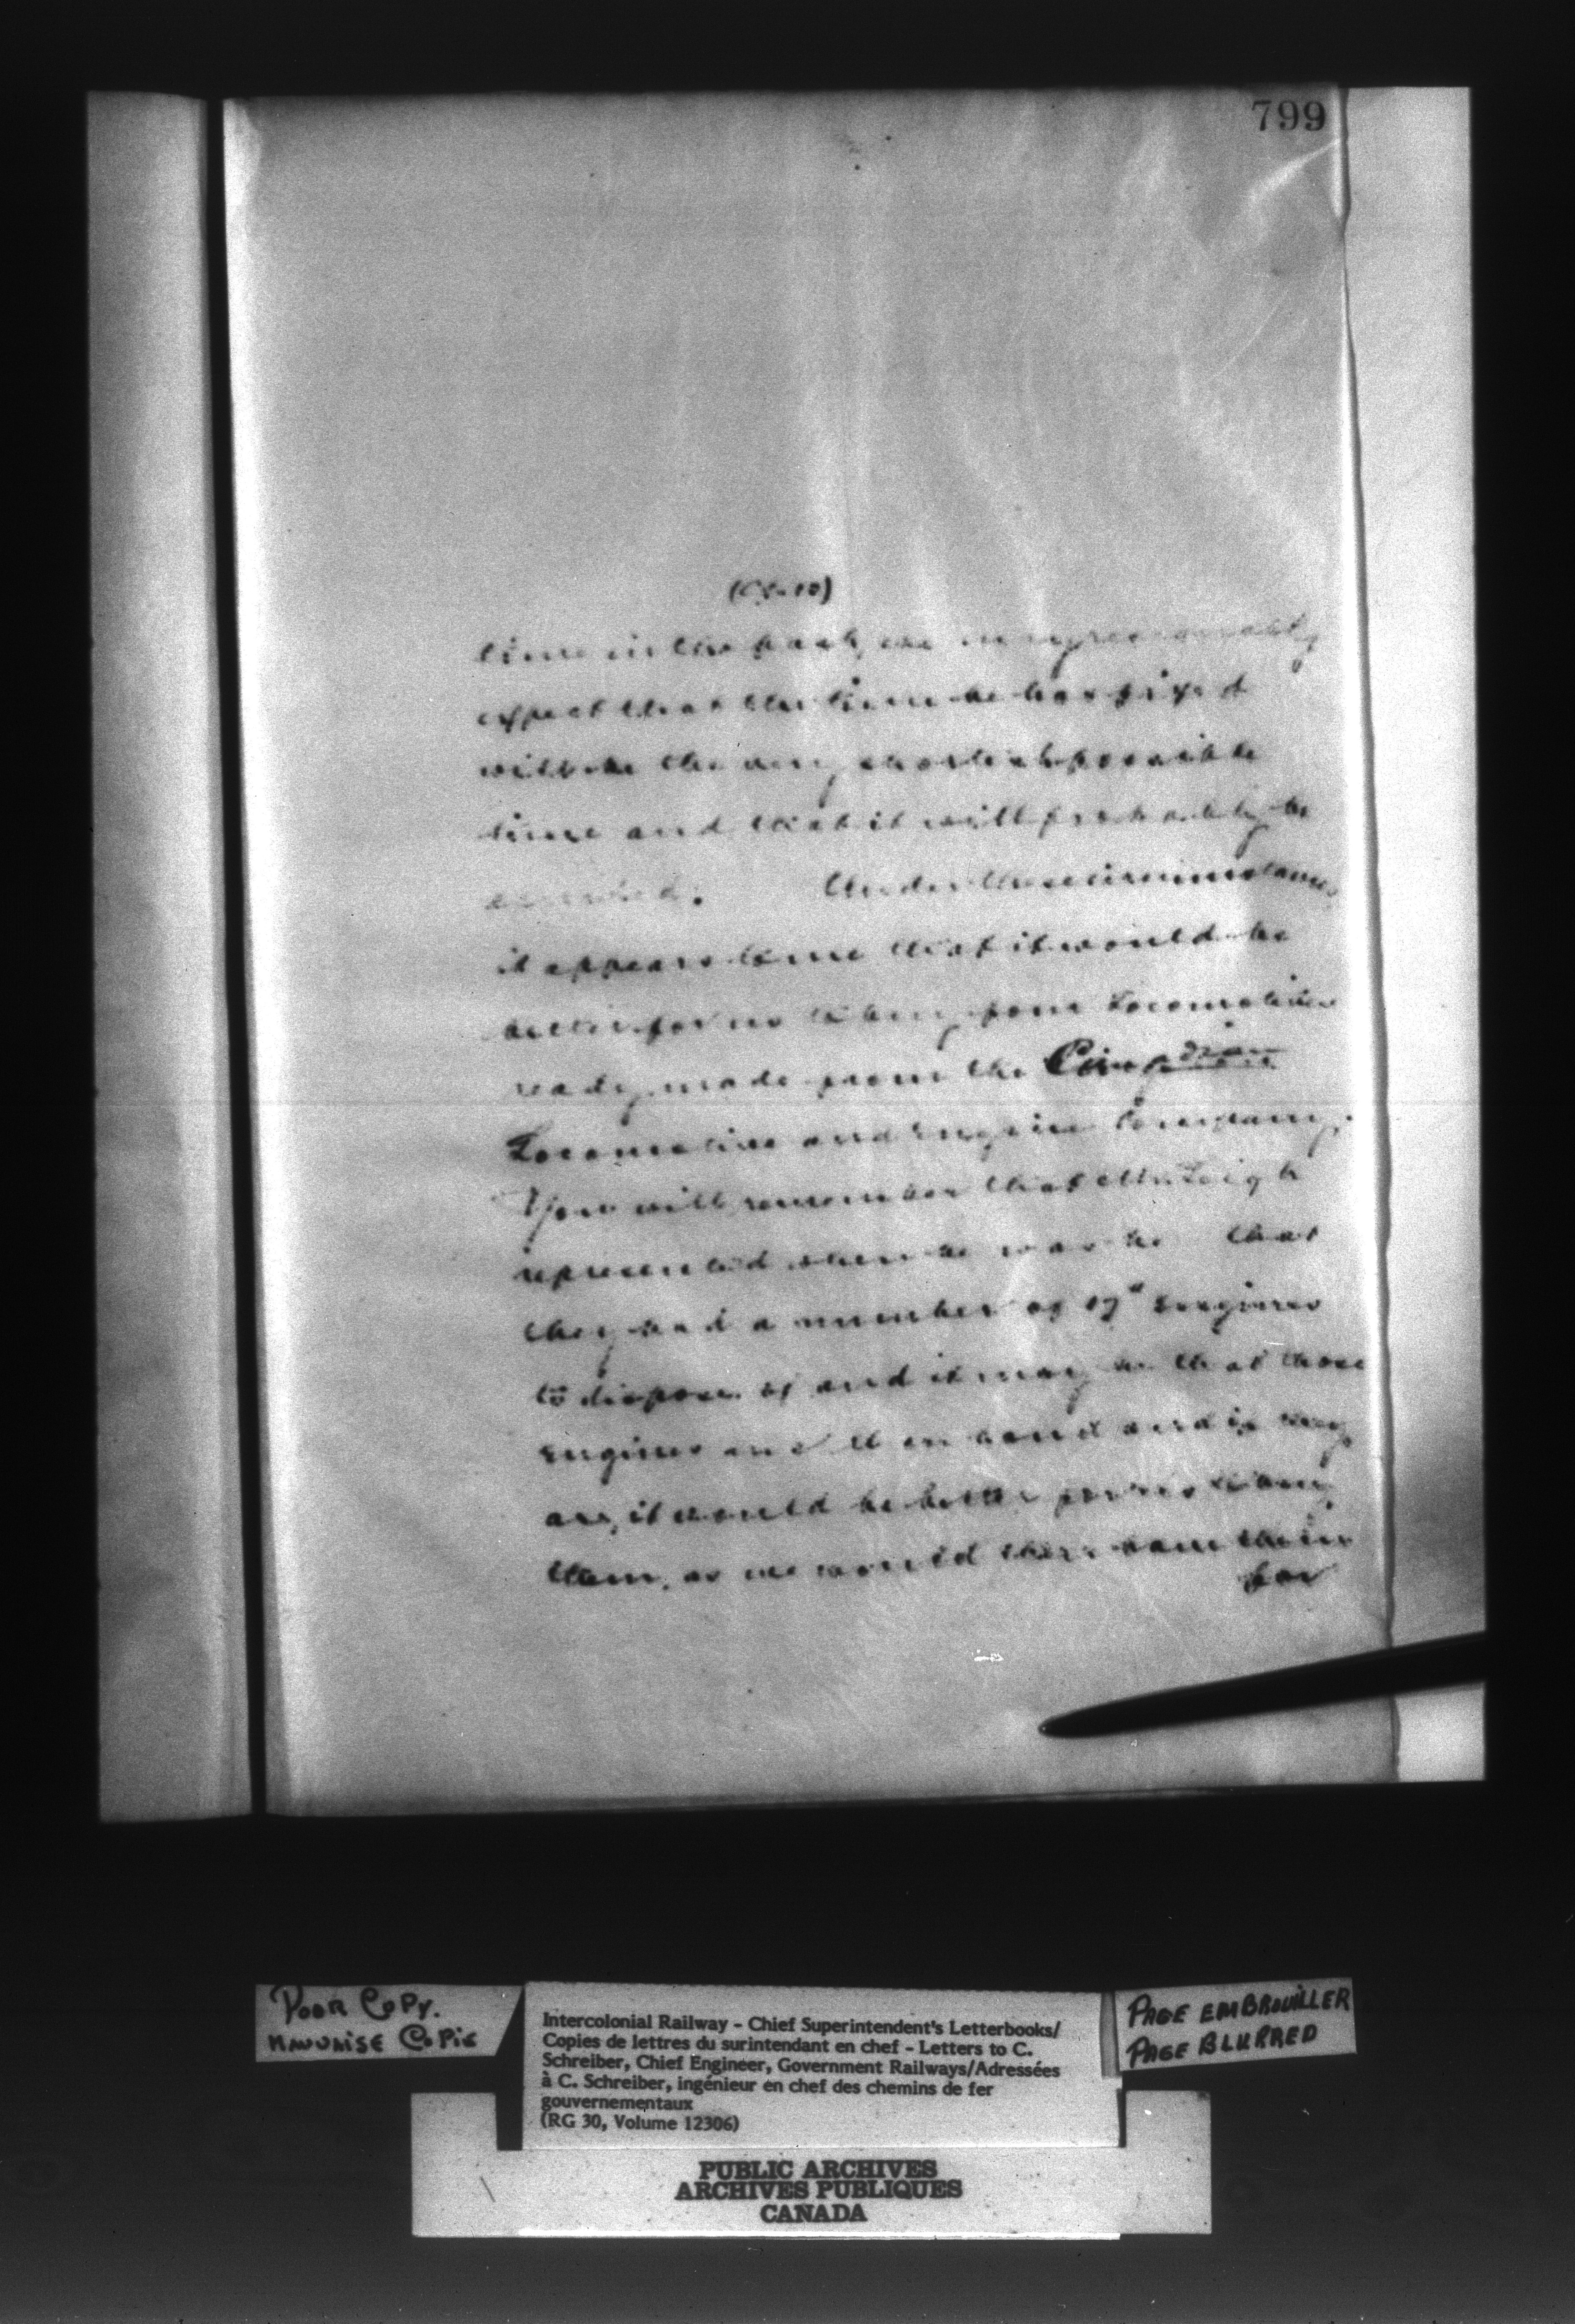 799
time in the past, we may reasonably
expect that the time he has fixed
will be the very shortest possible
time and that it will probably be
exceeded. Under these circumstances
it appears to me that it would be
better for us to buy four Locomotives
ready made from the Canadian
Locomotive and Engine Company.
You will remember that Mr Leigh
represented when he was that
they had a number of 17" Engines
to dispose of and it may be that those
Engines are on hand and if they
are, it would be better for us to buy
them, as we would then have them
for
POOR COPY.
MAUVAISE COPIE
Intercolonial Railway - Chief Superintendent's Letterbooks/
Copies de lettres du surintendant en chef - Letters to C.
Schreiber, Chief Engineer, Government Railways/Adressées
à C. Schreiber, ingénieur en chef des chemins de fer
gouvernementaux
(RG 30, Volume 12306)
PAGE EMBROUILLER
PAGE BLURRED
PUBLIC ARCHIVES
ARCHIVES PUBLIQUES
CANADA